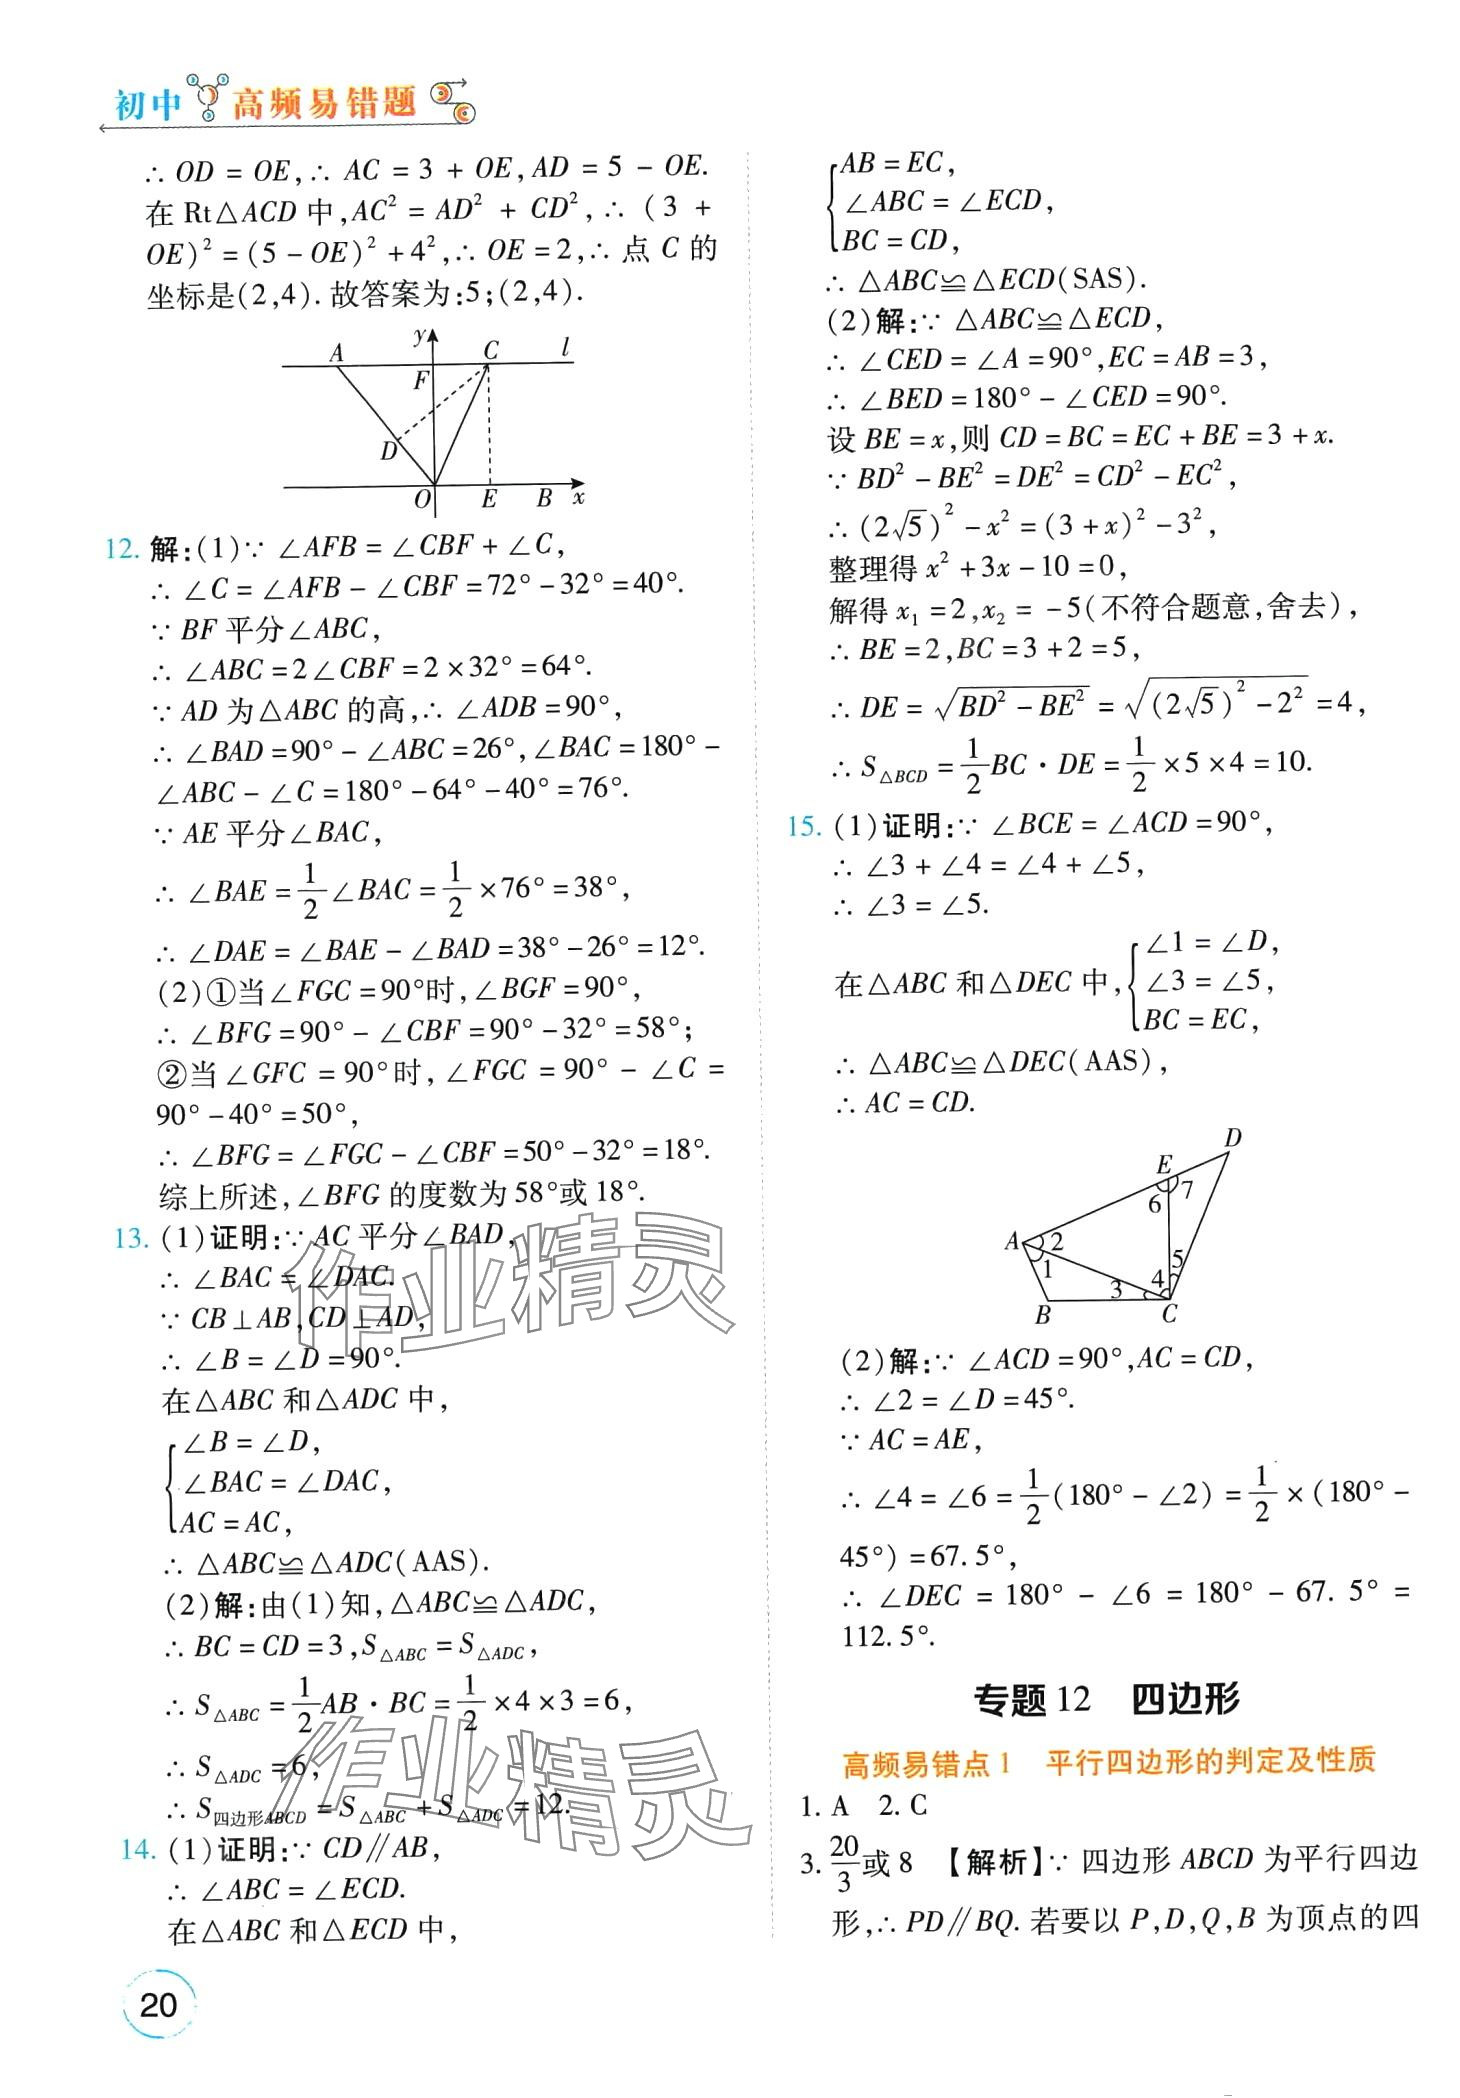 初中 高频易错题
∴ OD = OE,∴ AC = 3 + OE,AD = 5 - OE.
在 Rt△ACD 中,AC² = AD² + CD²,∴ (3 +
OE)² = (5 - OE)² + 4²,∴ OE = 2,∴ 点 C 的
坐标是(2,4). 故答案为:5;(2,4).
y
A
C
l
F
D
O
E
B
x
12. 解:(1)∵ ∠AFB = ∠CBF + ∠C,
∴ ∠C = ∠AFB - ∠CBF = 72° - 32° = 40°.
∵ BF 平分∠ABC,
∴ ∠ABC = 2∠CBF = 2 × 32° = 64°.
∵ AD 为△ABC 的高,∴ ∠ADB = 90°,
∴ ∠BAD = 90° - ∠ABC = 26°,∠BAC = 180° -
∠ABC - ∠C = 180° - 64° - 40° = 76°.
∵ AE 平分∠BAC,
∴ ∠BAE = 1/2∠BAC = 1/2 × 76° = 38°,
∴ ∠DAE = ∠BAE - ∠BAD = 38° - 26° = 12°.
(2)①当∠FGC = 90°时,∠BGF = 90°,
∴ ∠BFG = 90° - ∠CBF = 90° - 32° = 58°;
②当∠GFC = 90°时,∠FGC = 90° - ∠C =
90° - 40° = 50°,
∴ ∠BFG = ∠FGC - ∠CBF = 50° - 32° = 18°.
综上所述,∠BFG 的度数为 58°或 18°.
13. (1)证明:∵ AC 平分∠BAD,
∴ ∠BAC = ∠DAC.
∵ CB⊥AB,CD⊥AD,
∴ ∠B = ∠D = 90°.
在△ABC 和△ADC 中,
∠B = ∠D,
∠BAC = ∠DAC,
AC = AC,
∴ △ABC≌△ADC(AAS).
(2)解:由(1)知,△ABC≌△ADC,
∴ BC = CD = 3,S△ABC = S△ADC,
∴ S△ABC = 1/2 AB · BC = 1/2 × 4 × 3 = 6,
∴ S△ADC = 6,
∴ S四边形ABCD = S△ABC + S△ADC = 12.
14. (1)证明:∵ CD∥AB,
∴ ∠ABC = ∠ECD.
在△ABC 和△ECD 中,
20
AB = EC,
∠ABC = ∠ECD,
BC = CD,
∴ △ABC≌△ECD(SAS).
(2)解:∵ △ABC≌△ECD,
∴ ∠CED = ∠A = 90°,EC = AB = 3,
∴ ∠BED = 180° - ∠CED = 90°.
设 BE = x,则 CD = BC = EC + BE = 3 + x.
∵ BD² - BE² = DE² = CD² - EC²,
∴ (2√5)² - x² = (3 + x)² - 3²,
整理得 x² + 3x - 10 = 0,
解得 x₁ = 2,x₂ = -5(不符合题意,舍去),
∴ BE = 2,BC = 3 + 2 = 5,
∴ DE = √(BD² - BE²) = √((2√5)² - 2²) = 4,
∴ S△BCD = 1/2 BC · DE = 1/2 × 5 × 4 = 10.
15. (1)证明:∵ ∠BCE = ∠ACD = 90°,
∴ ∠3 + ∠4 = ∠4 + ∠5,
∴ ∠3 = ∠5.
∠1 = ∠D,
在△ABC 和△DEC 中, ∠3 = ∠5,
BC = EC,
∴ △ABC≌△DEC(AAS),
∴ AC = CD.
D
E
6 7
A 2
1
5
3 4
B
C
(2)解:∵ ∠ACD = 90°,AC = CD,
∴ ∠2 = ∠D = 45°.
∵ AC = AE,
∴ ∠4 = ∠6 = 1/2(180° - ∠2) = 1/2 × (180° -
45°) = 67.5°,
∴ ∠DEC = 180° - ∠6 = 180° - 67.5° =
112.5°.
专题 12 四边形
高频易错点 1 平行四边形的判定及性质
1. A 2. C
3. 20/3 或 8 【解析】∵ 四边形 ABCD 为平行四边
形,∴ PD∥BQ. 若要以 P,D,Q,B 为顶点的四
作业精灵
作业精灵